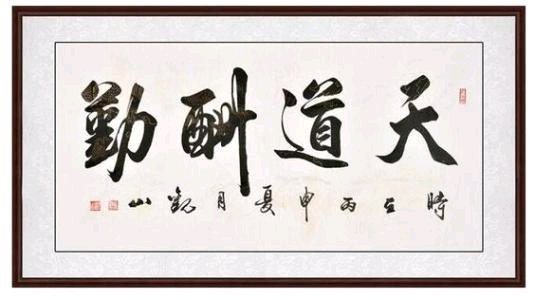 天道酬勤
時在丙申夏月觀山